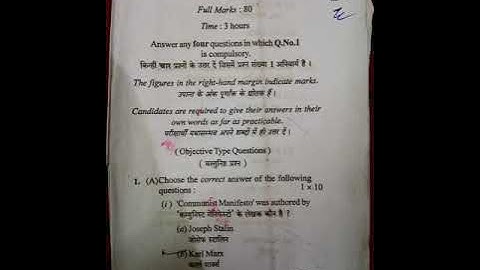 Full Marks : 80
Time : 3 hours
Answer any four questions in which Q.No.1
is compulsory.
किन्हीं चार प्रश्नों के उत्तर दें जिसमें प्रश्न संख्या 1 अनिवार्य है ।
The figures in the right-hand margin indicate marks.
उपान्त के अंक पूर्णांक के द्योतक हैं ।
Candidates are required to give their answers in their
own words as far as practicable.
परीक्षार्थी यथासम्भव अपने शब्दों में ही उत्तर दें ।
( Objective Type Questions )
( वस्तुनिष्ठ प्रश्न )
1. (A) Choose the correct answer of the following
questions : 1 x 10
(i) 'Communist Manifesto' was authored by
'कम्युनिस्ट मेनिफेस्टो' के लेखक कौन है ?
(a) Joseph Stalin
जोसेफ स्टालिन
(b) Karl Marx
कार्ल मार्क्स